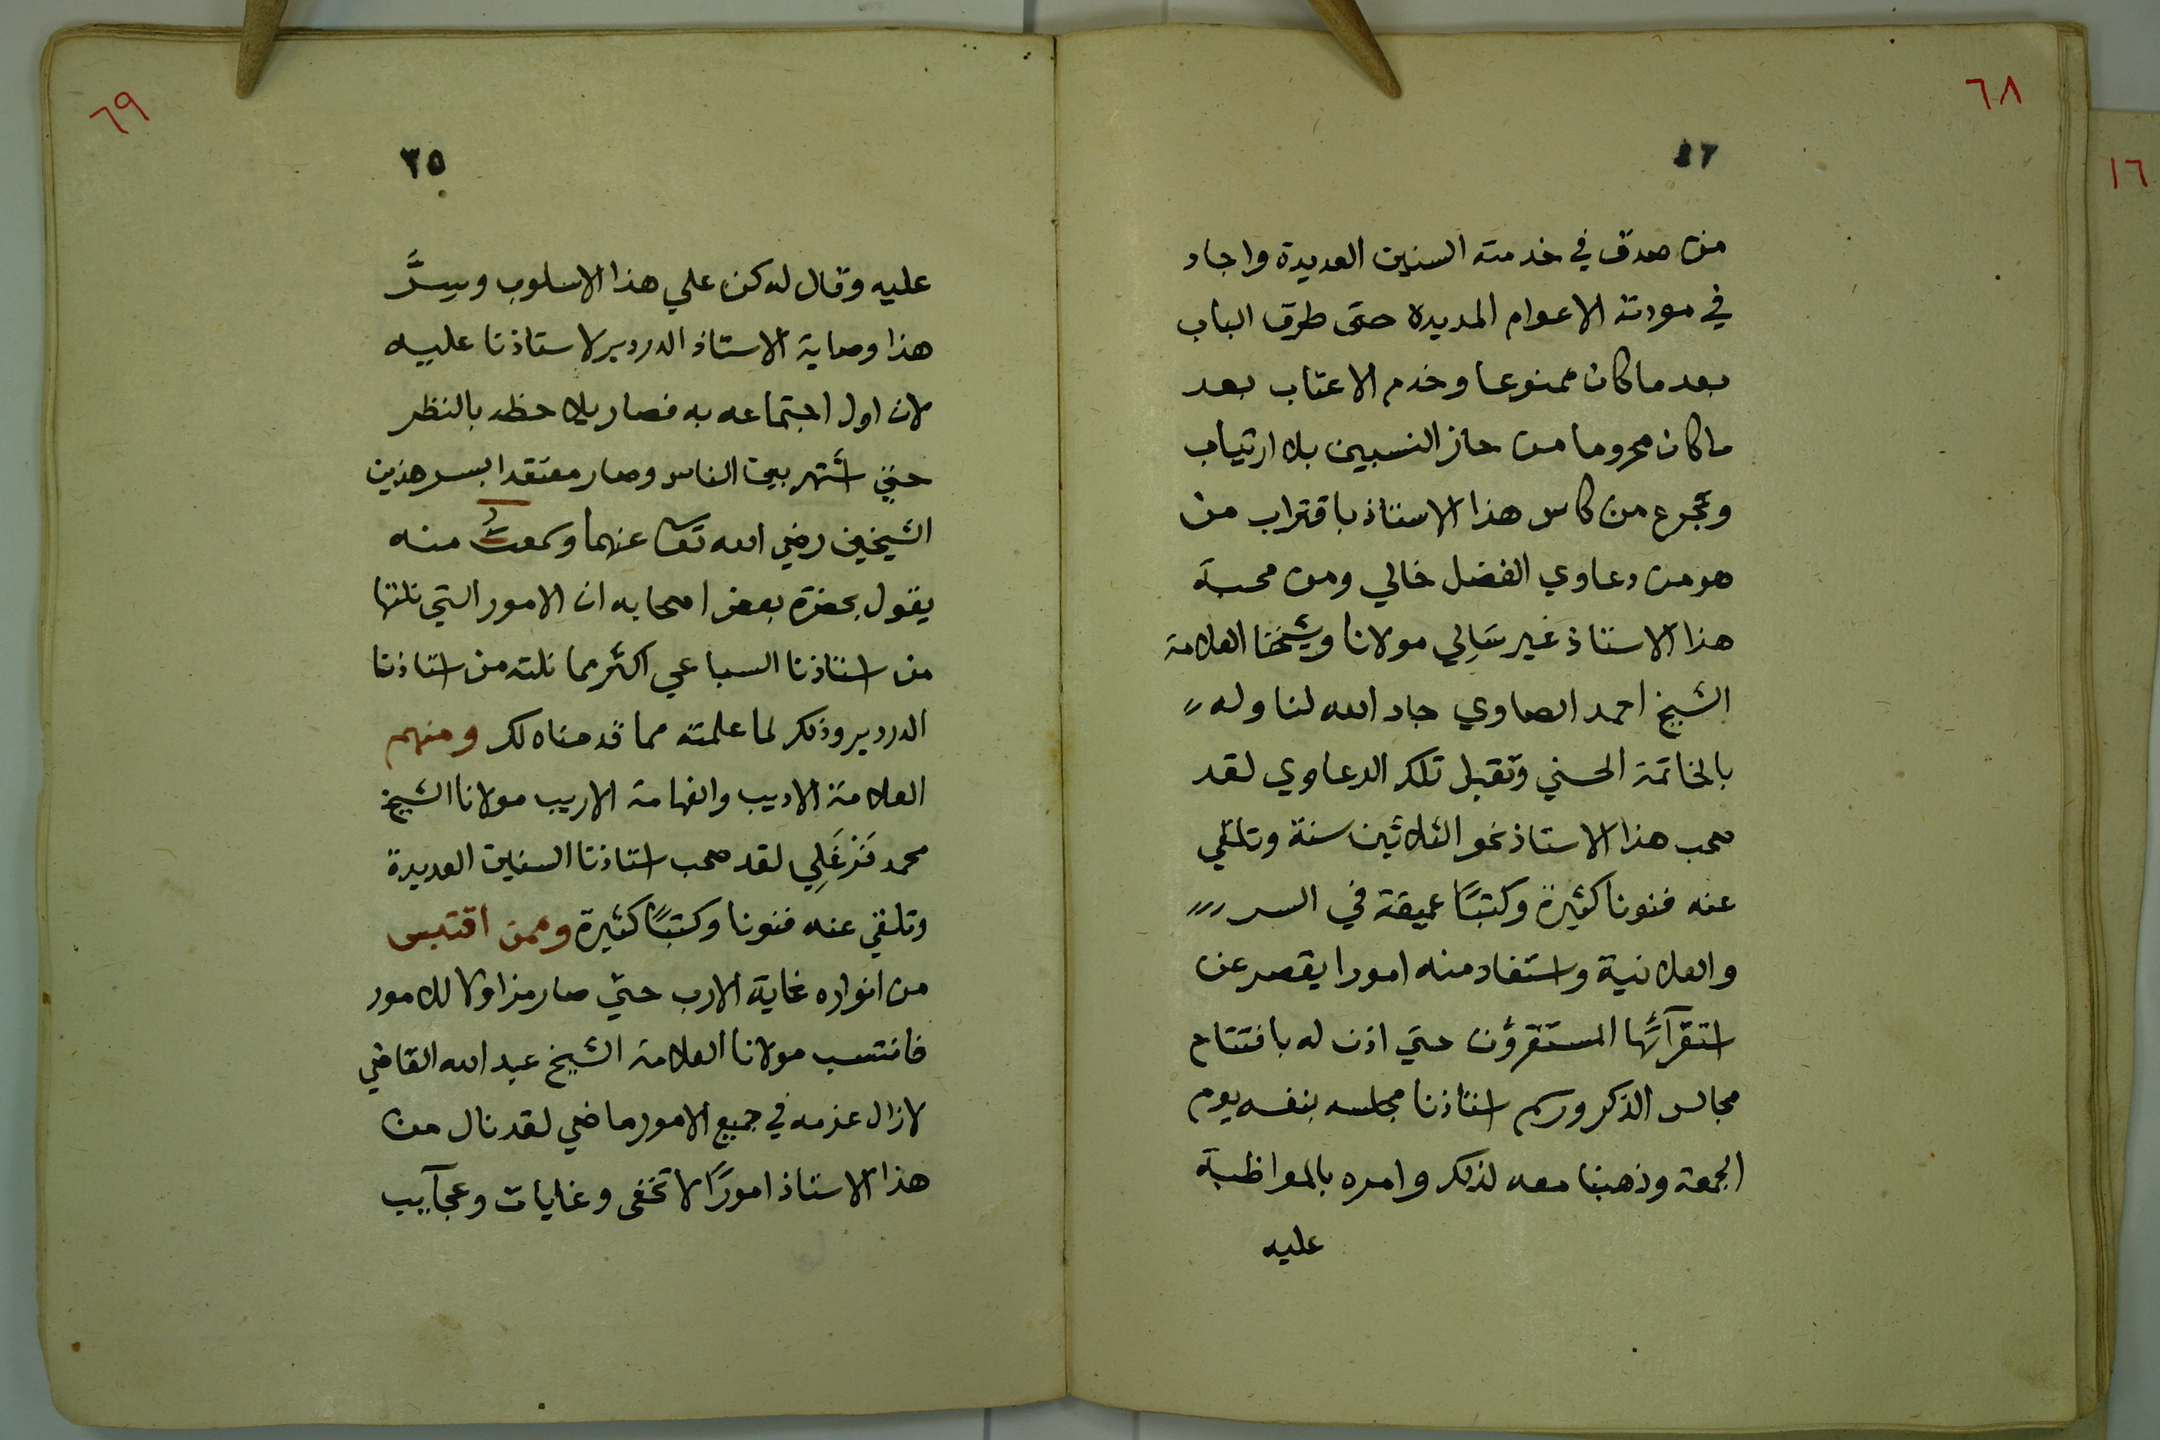 ٦٨
١٦
من صدق في خدمته السنين العديدة واجاد
في مودته الاعوام المديدة حتى طرق الباب
بعد ما كان ممنوعا وخدم الاعتاب بعد
ما كان محروما من حاز النسبين بلا ارتياب
وتجرع من كاس هذا الاستاذ باقتراب من
هو من دعاوي الفضل خالي ومن محبة
هذا الاستاذ غير سَالِي مولانا وشيخنا العلامة
الشيخ احمد الصاوي جاد الله لنا وله
بالخاتمة الحسني وتقبل تلك الدعاوي لقد
صحب هذا الاستاذ نحو الثلاثين سنة وتلقي
عنه فنونا كثيرة وكتبًا عميقة في السر
والعلانية واستفاد منه امورا يقصر عن
استقرآئها المستقرؤن حتي اذن له بافتتاح
مجالس الذكر ورسم استاذنا مجلسه بنفسه يوم
الجمعة وذهبنا معه لذلك وامره بالمواظبة
عليه
٦٩
٣٥
عليه وقال له كن علي هذا الاسلوب وسِرُّ
هذا وصاية الاستاذ الدردير لاستاذنا عليه
لان اول اجتماعه به فصار يلاحظه بالنظر
حتي اشتهر بين الناس وصار معتقدا بسر هذين
الشيخين رضي الله تعا عنهما وسمعتُ منه
يقول بحضرة بعض اصحابه ان الامور التي نلتها
من استاذنا السباعي اكثر مما نلته من استاذنا
الدردير وذلك لما علمته مما قدمناه لك ومنهم
العلامة الاديب والفهامة الاريب مولانا الشيخ
محمد فَرْغَلِي لقد صحب استاذنا السنين العديدة
وتلقي عنه فنونا وكتبًا كثيرة وممن اقتبس
من انواره غاية الارب حتي صار مزاولا للامور
فانتسب مولانا العلامة الشيخ عبد الله القاضي
لازال عزمه في جميع الامور ماضي لقد نال من
هذا الاستاذ امورًا لا تخفى وغايات وعجآيب